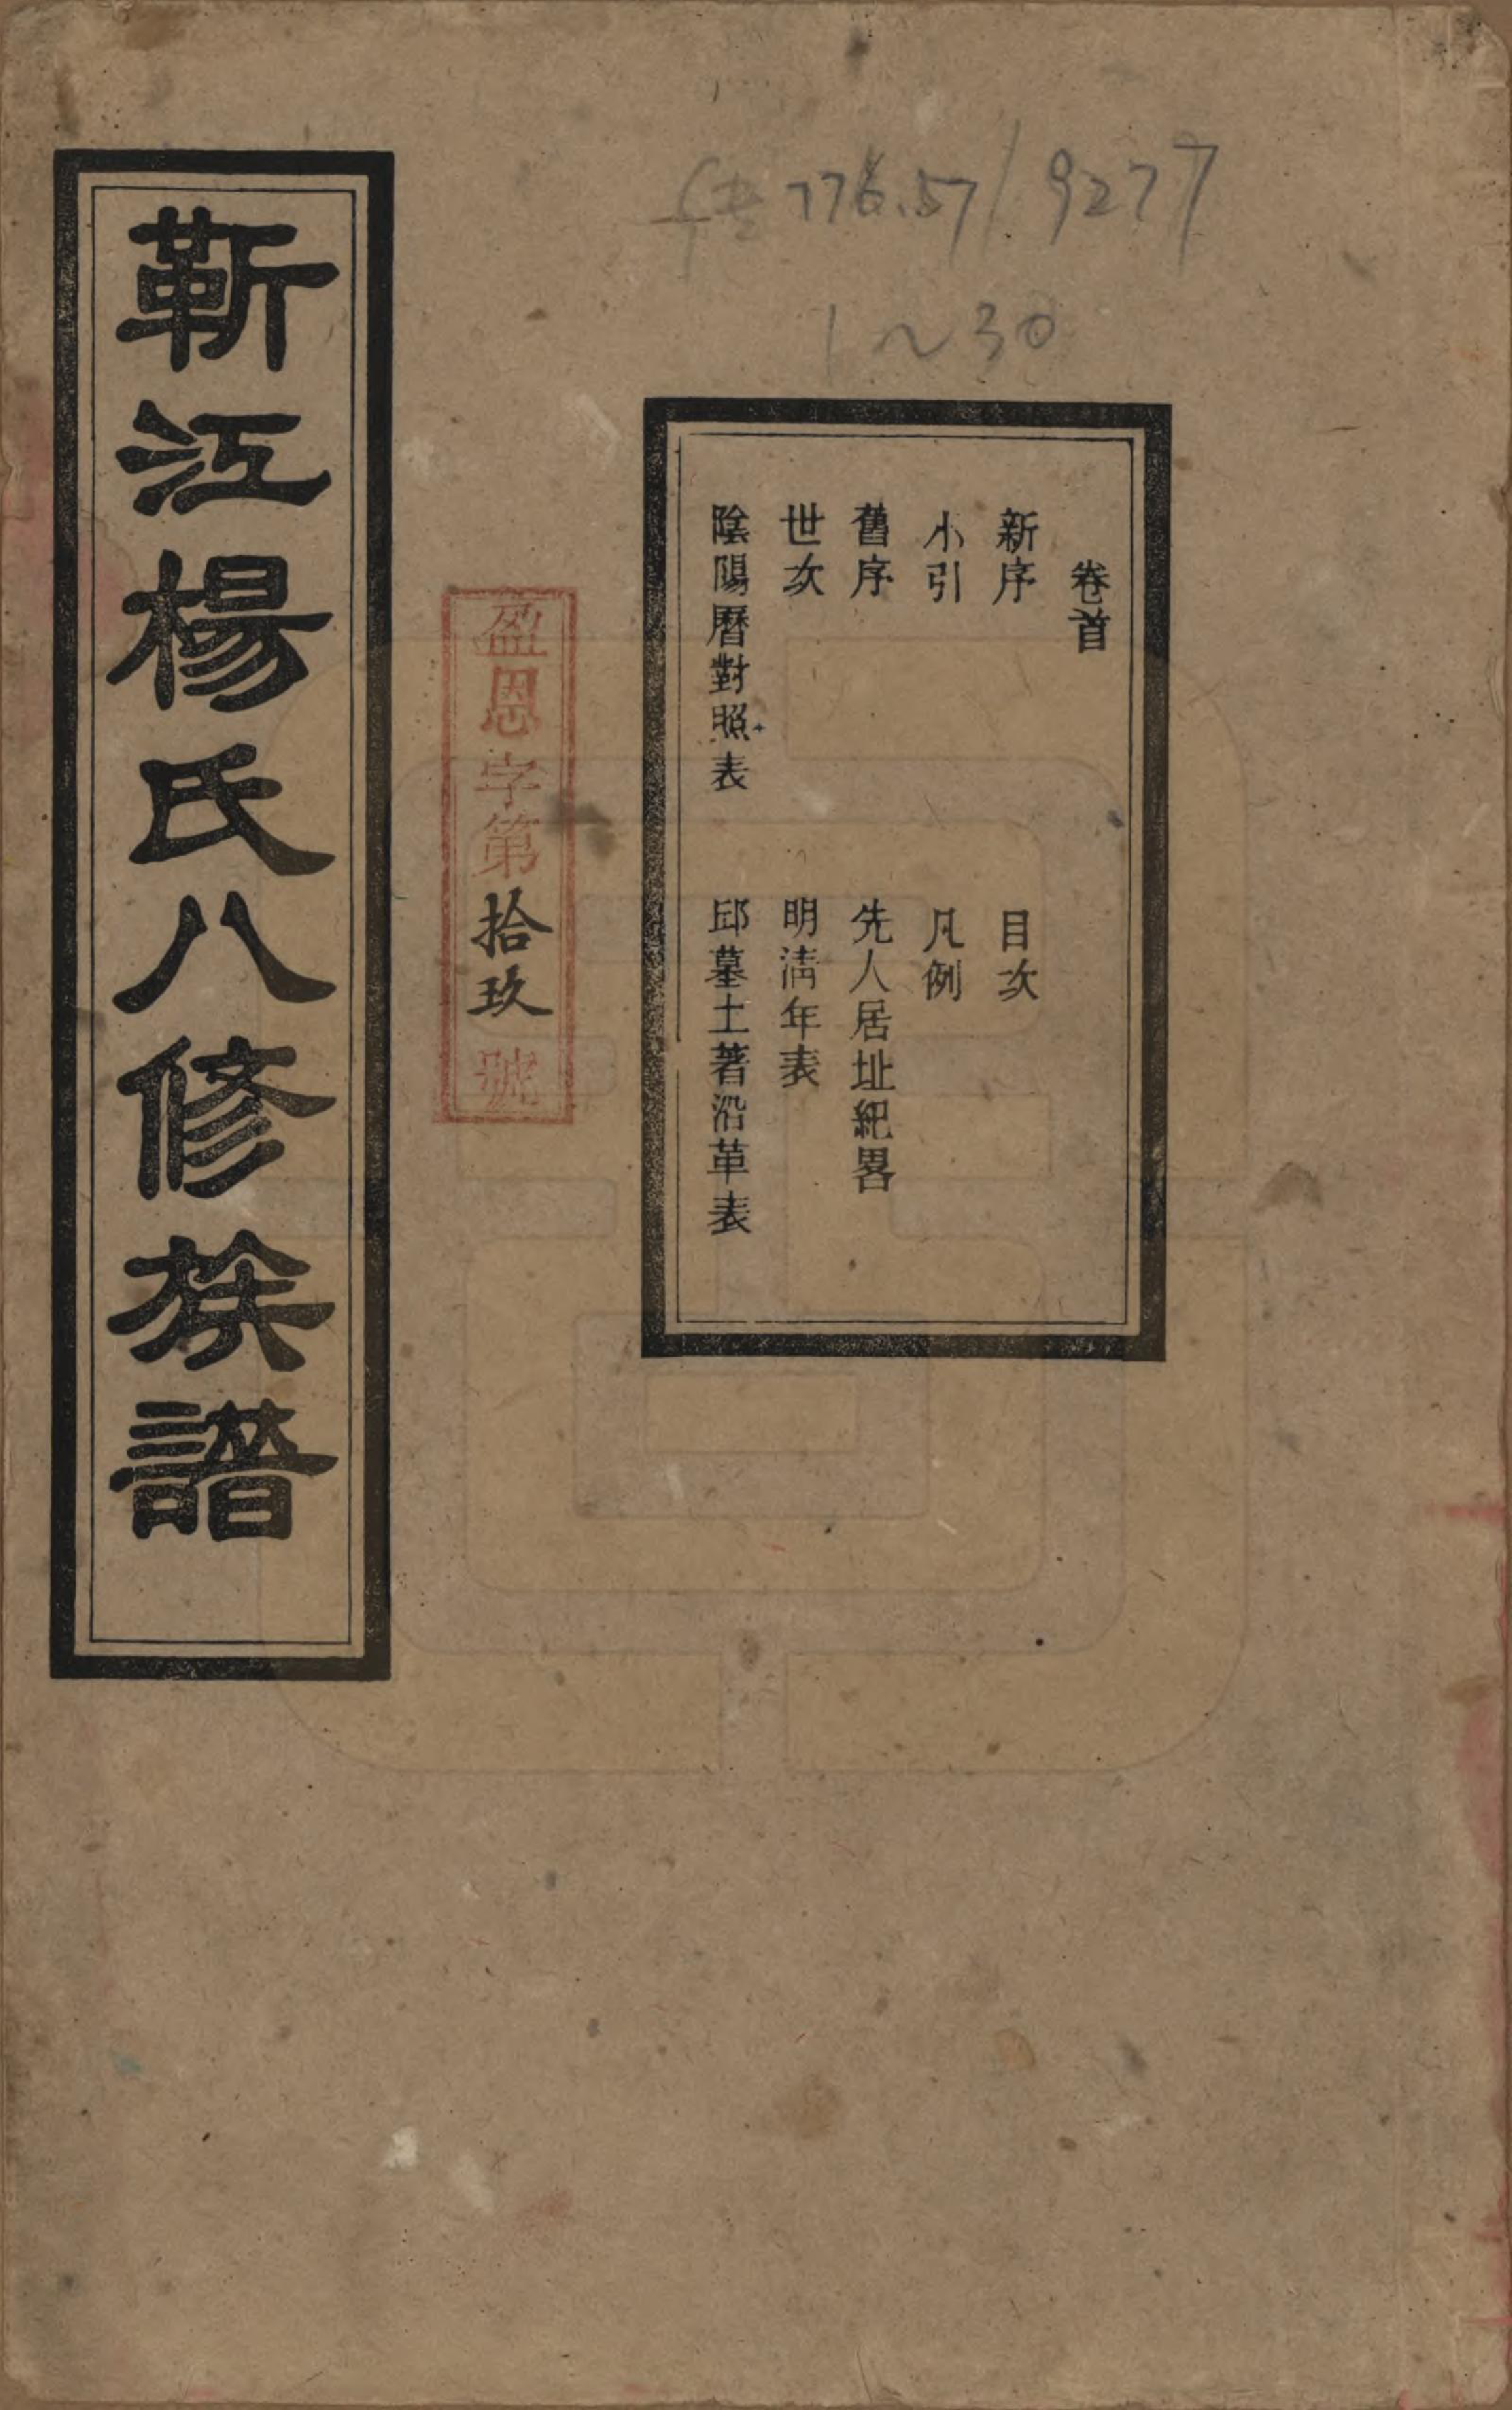 776.57/9277
1~30
卷首
新序 目次
小引 凡例
舊序 先人居址紀畧
世次 明淸年表
陰陽曆對照表 邱墓土著沿革表
盈恩字第拾玖號
靳江楊氏八修族譜